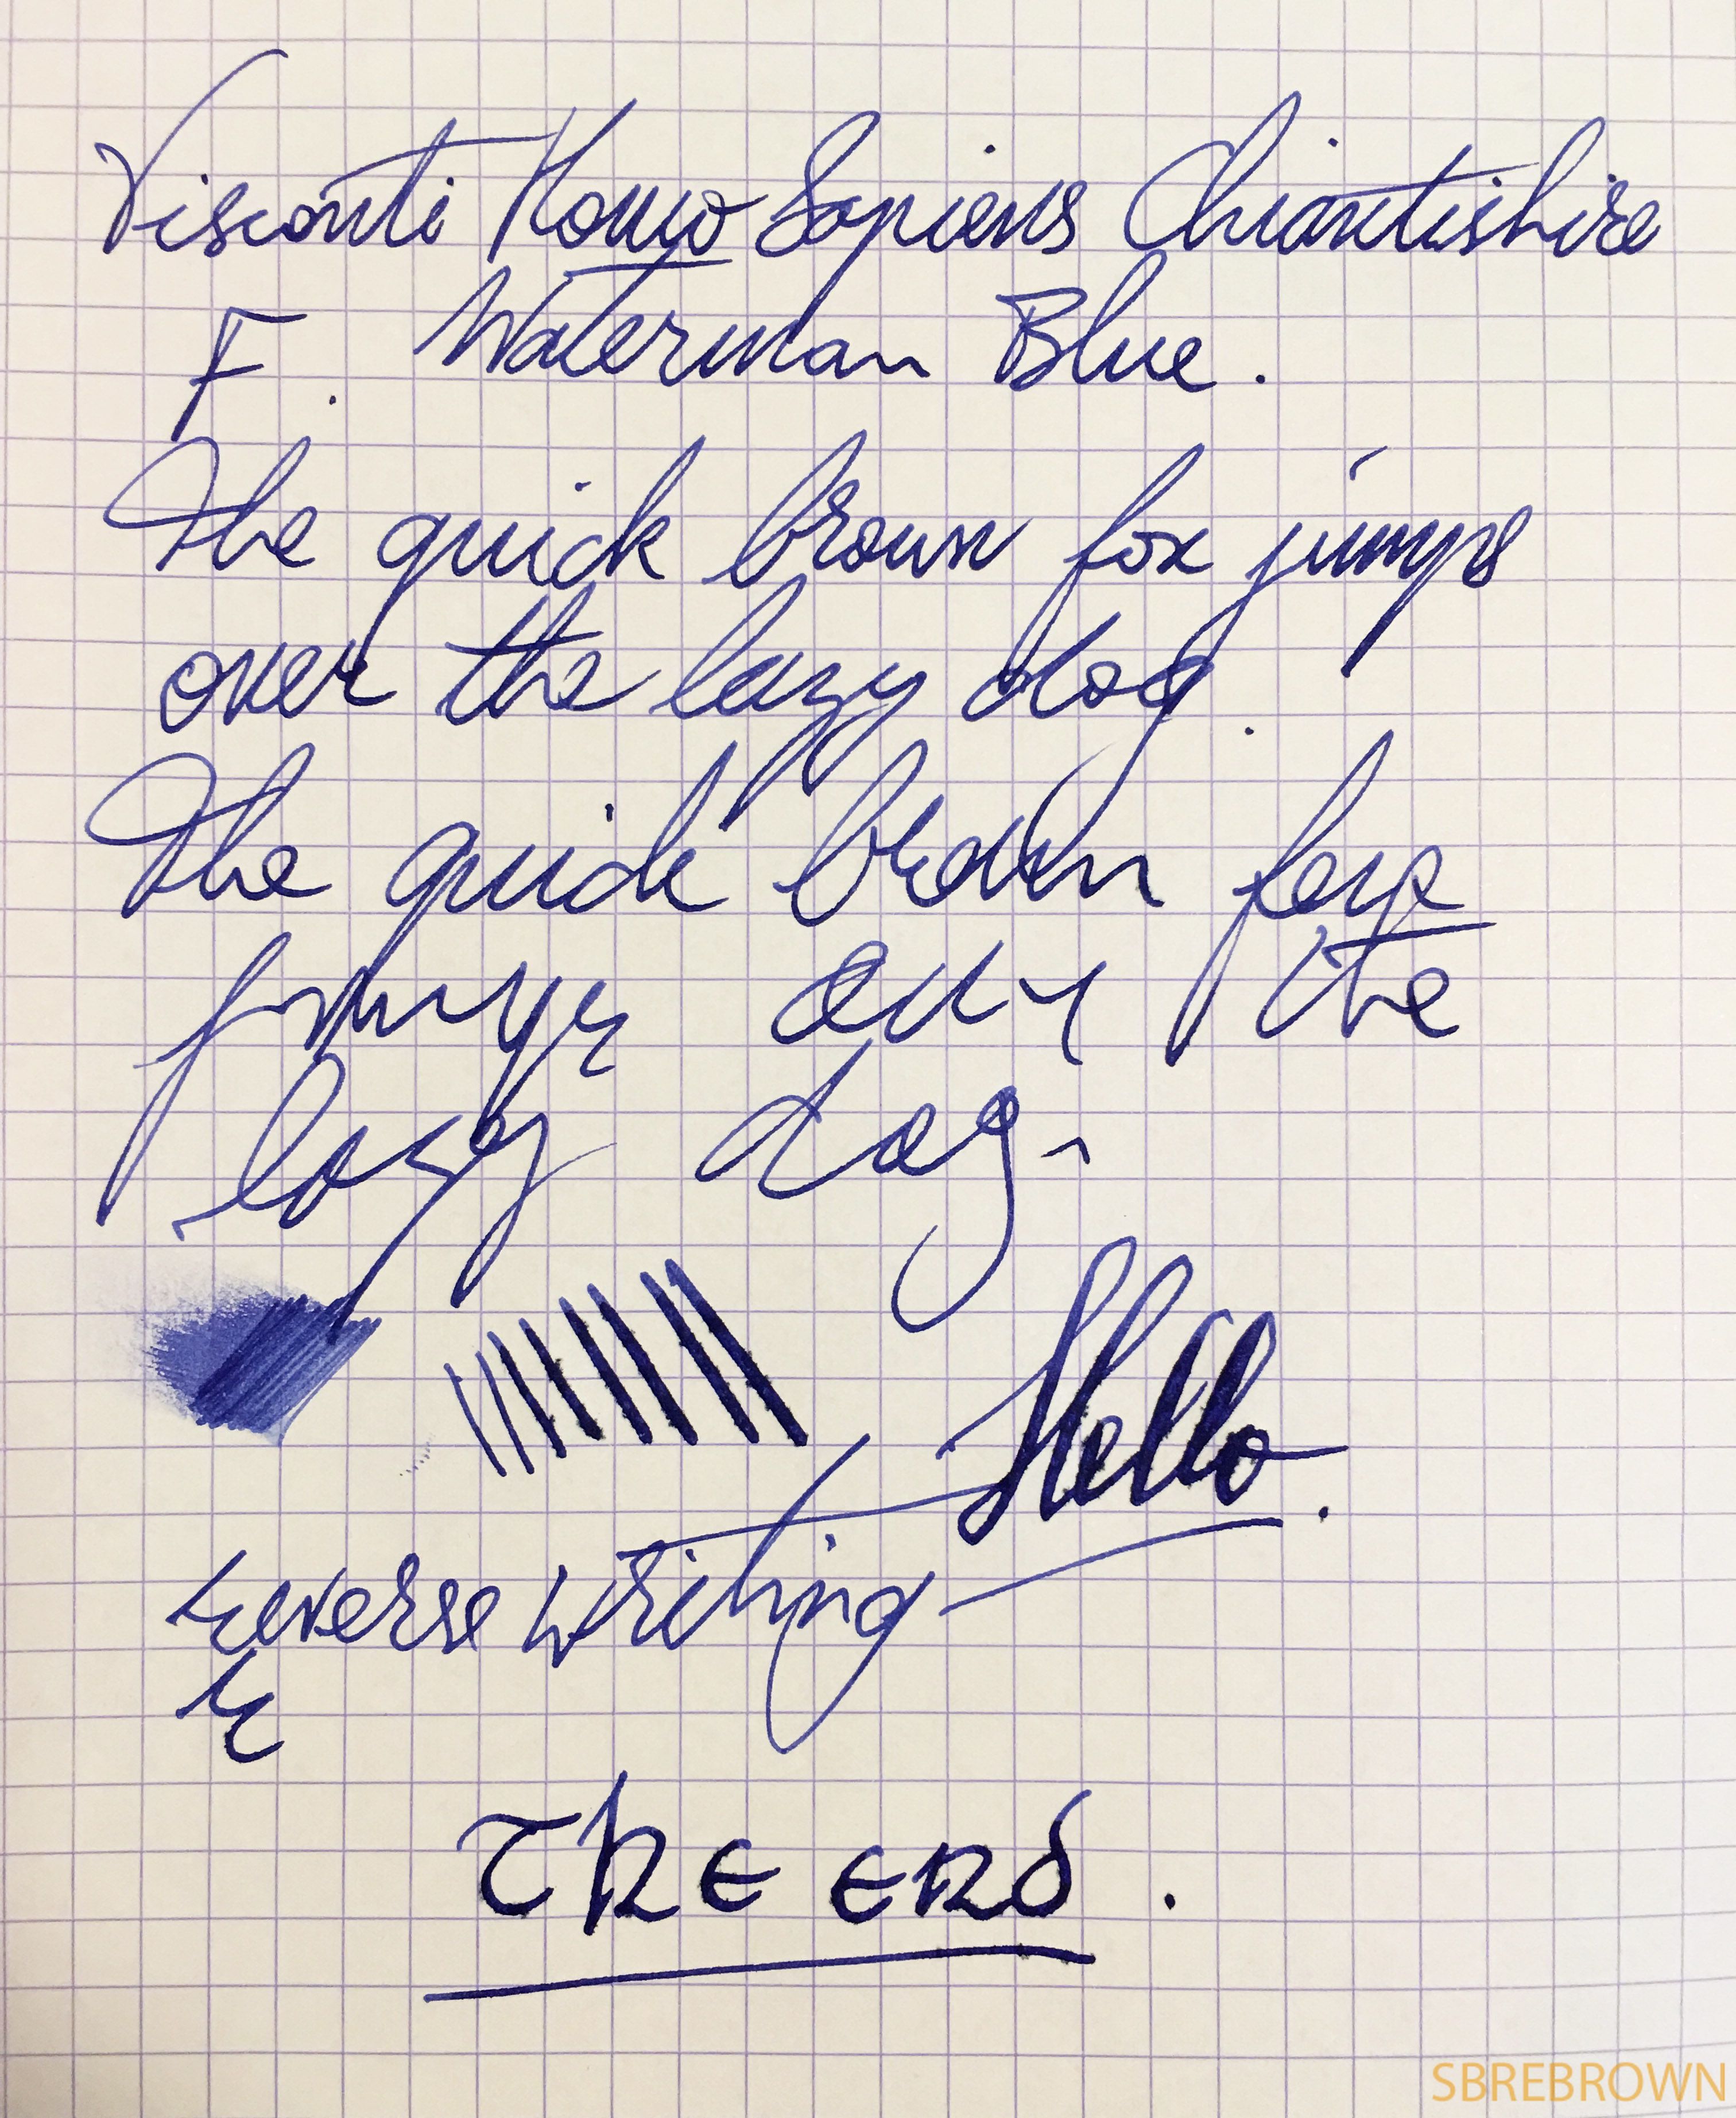 Visconti Homo Sapiens Chiantishire
F. Waterman Blue.
The quick brown fox jumps
over the lazy dog.
The quick brown fox
jumps over the
lazy dog.
Hello.
reverse writing
The End.
SBREBROWN